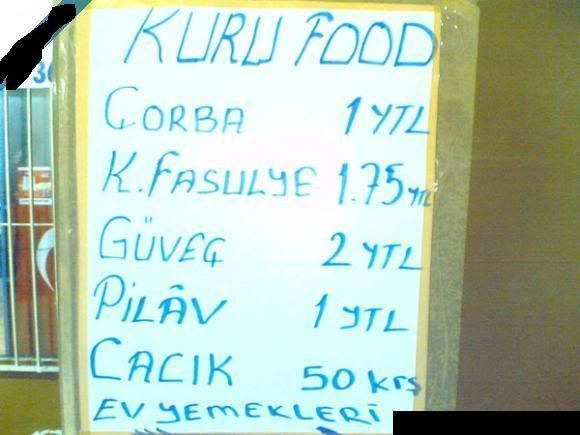 KURU FOOD
ÇORBA 1 YTL
K.FASULYE 1.75 YTL
GÜVEÇ 2 YTL
PİLÂV 1 YTL
CACIK 50 krş
EV YEMEKLERİ